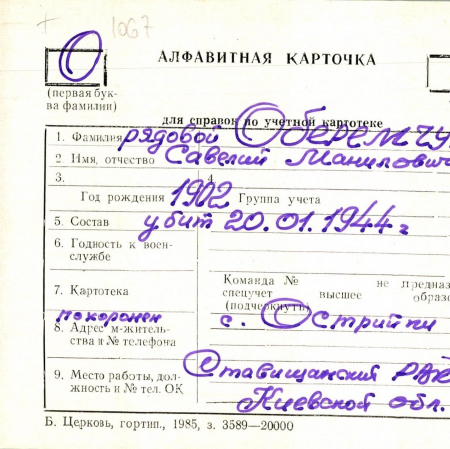 1067
АЛФАВИТНАЯ КАРТОЧКА
О
(первая бук-
ва фамилии)
для справок по учетной картотеке
1. Фамилия рядовой Оберемчу
2 Имя, отчество Савелий Манилович
3. 4
Год рождения 1902 Группа учета
5. Состав убит 20.01.1944 г
6. Годность к воен-
службе
Команда № не предназ
спецучет высшее образо
(подчеркнуть)
7. Картотека
похоронен с. Острийки
8. Адрес м-житель-
ства и № телефона
9. Место работы, дол-
жность и № тел. ОК
Ставищанский рай
Киевской обл.
Б. Церковь, гортип., 1985, з. 3589—20000